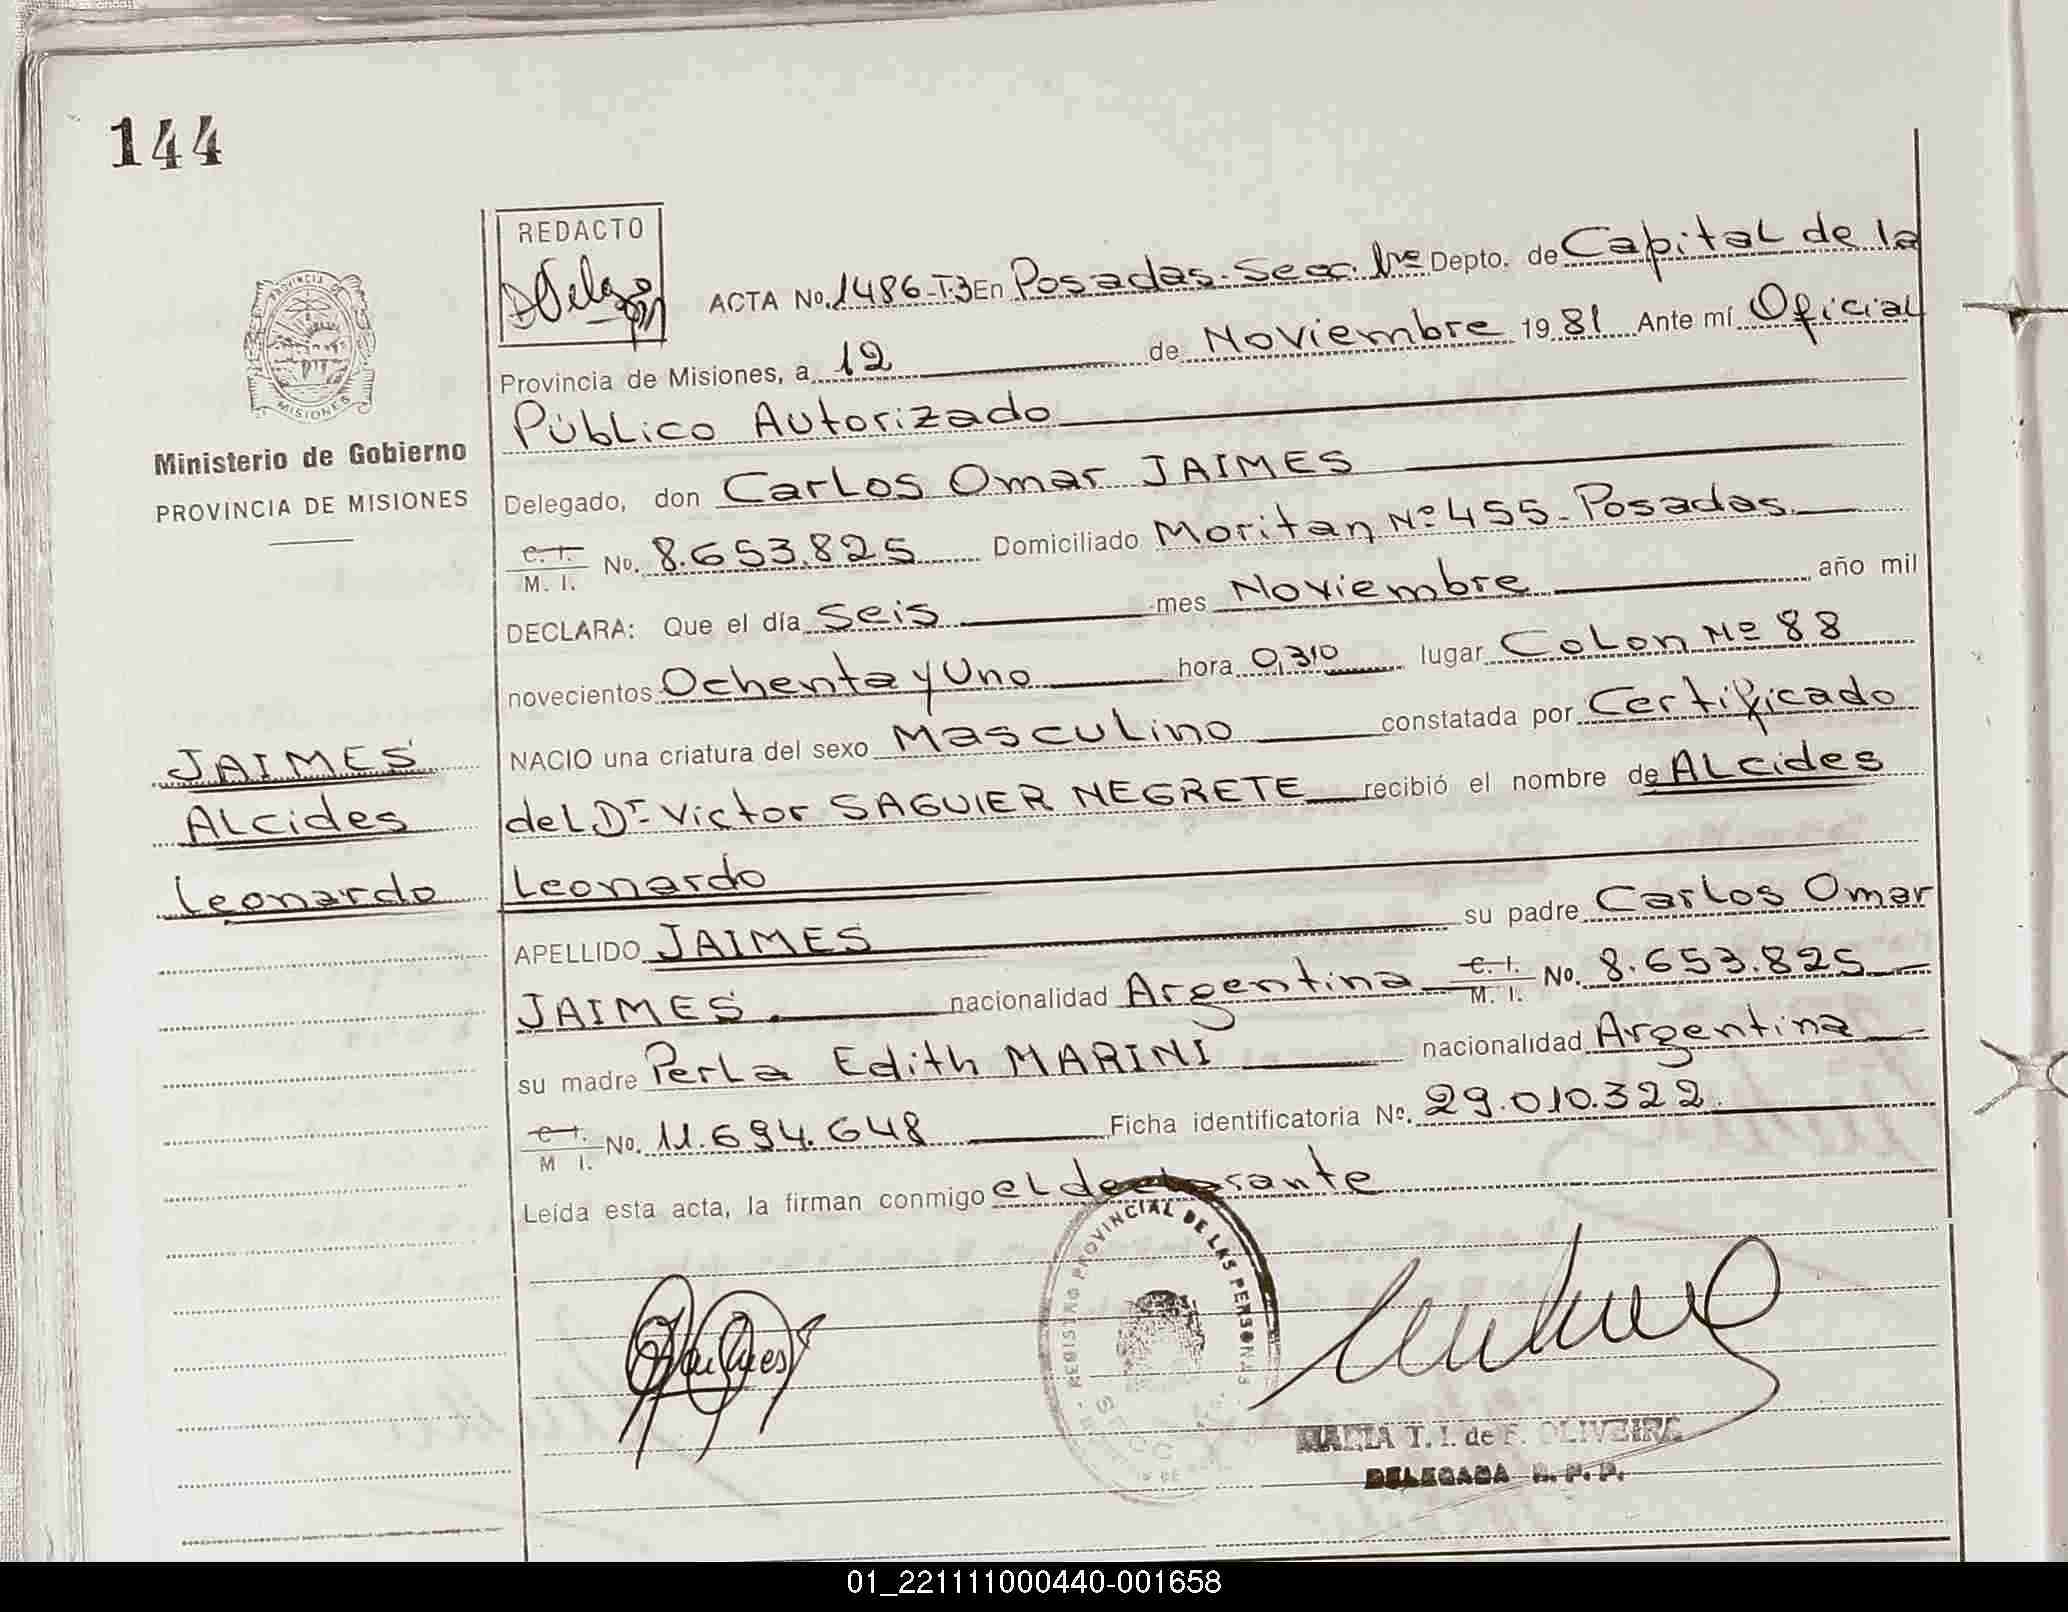 144
REDACTO
ACTA No. 1486-T3 En Posadas. Secc. 1ra Depto. de Capital de la
Provincia de Misiones, a 12 de Noviembre 1981 Ante mí Oficial
Público Autorizado
PROVINCIA
MISIONES
Ministerio de Gobierno
PROVINCIA DE MISIONES
Delegado, don Carlos Omar JAIMES
C. I.
M. I. No. 8.653.825 Domiciliado Moritan Nº 455 - Posadas
DECLARA: Que el día Seis mes Noviembre año mil
novecientos Ochenta y Uno hora 0,310 lugar Colon Nº 88
NACIO una criatura del sexo Masculino constatada por Certificado
JAIMES
Alcides
Leonardo
del Dr Victor SAGUIER NEGRETE recibió el nombre de Alcides
Leonardo
APELLIDO JAIMES su padre Carlos Omar
JAIMES. nacionalidad Argentina C. I. M. I. No. 8.653.825
su madre Perla Edith MARINI nacionalidad Argentina
C. I.
M. I. No. 11.694.648 Ficha identificatoria No. 29.010.322
Leída esta acta, la firman conmigo el declarante
REGISTRO PROVINCIAL DE LAS PERSONAS
SECC
MARIA T. I. de F. OLIVEIRA
DELEGADA R. P. P.
01_221111000440-001658